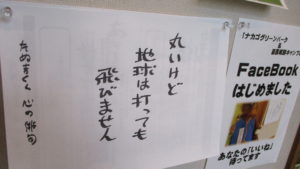 丸いけど
地球は打っても
飛びません
きぬさく 心の俳句
「ナカゴグリーンパーク
FaceBook
はじめました
あなたの「いいね」
待ってます